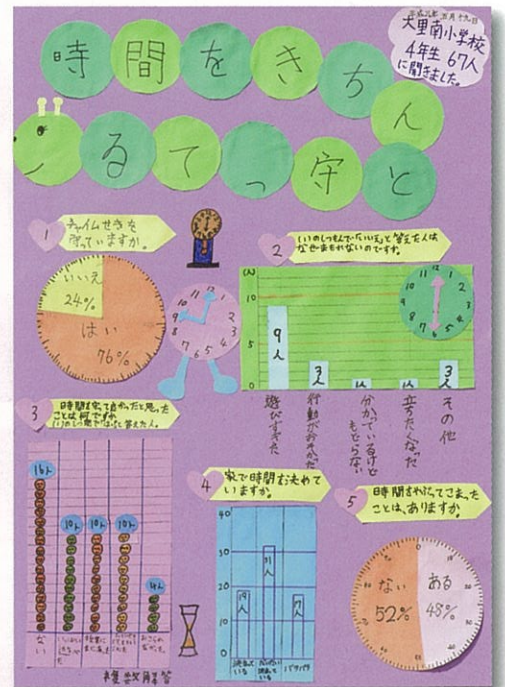 大里南小学校
4年生 67人
に聞きました。
時間をきちん
と守ってる
1
チャイムせきを
守っていますか。
いいえ
24%
はい
76%
2
(1)のしつもんで「いいえ」と答えた人は
なぜまもれないのですか。
(人)
10
5
0
9人
3人
1人
1人
3人
遊びすぎた
行動がおそかった
分かっているけど
もどらない
立ちたくなった
その他
3
時間を守って良かったと思った
ことは何ですか
16人
10人
10人
10人
4人
ない
複数解答
4
家で時間を決めて
いますか。
40
30
20
10
0
19人
31人
17人
決まって
いる
だいたい
決まって
いる
バラバラ
5
時間をやぶってこまった
ことは、ありますか。
ない
52%
ある
48%